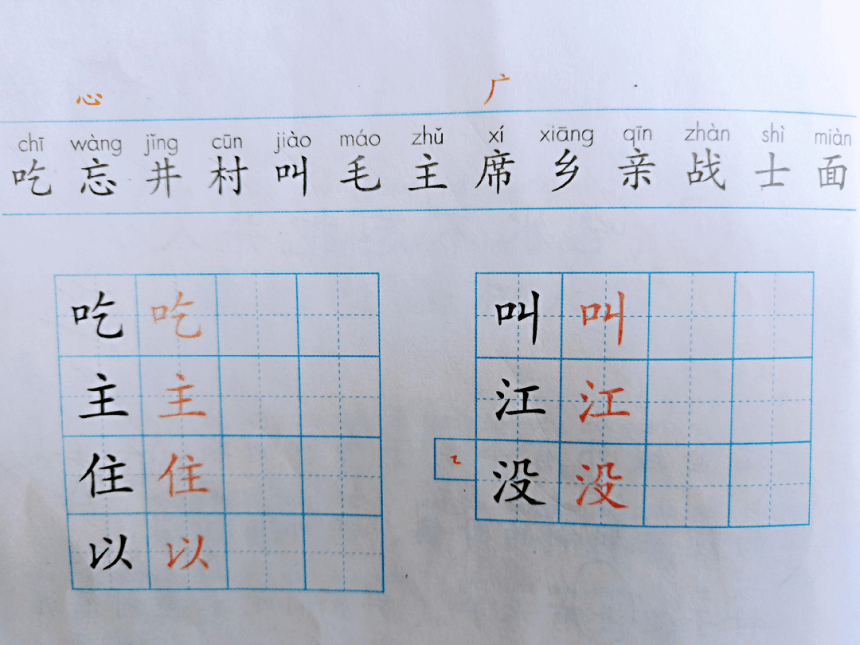 心 广
chī wàng jǐng cūn jiào máo zhǔ xí xiāng qīn zhàn shì miàn
吃 忘 井 村 叫 毛 主 席 乡 亲 战 士 面
吃 吃
主 主
住 住
以 以
叫 叫
江 江
㇈ 没 没